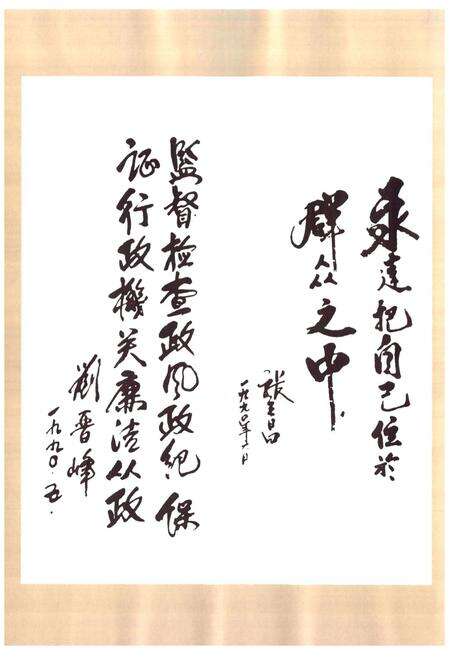 永遠把自己位於
群众之中
张立昌
一九九〇年
監督检查政风政紀保
证行政機关廉洁从政
劉晋峰
一九九〇.五.